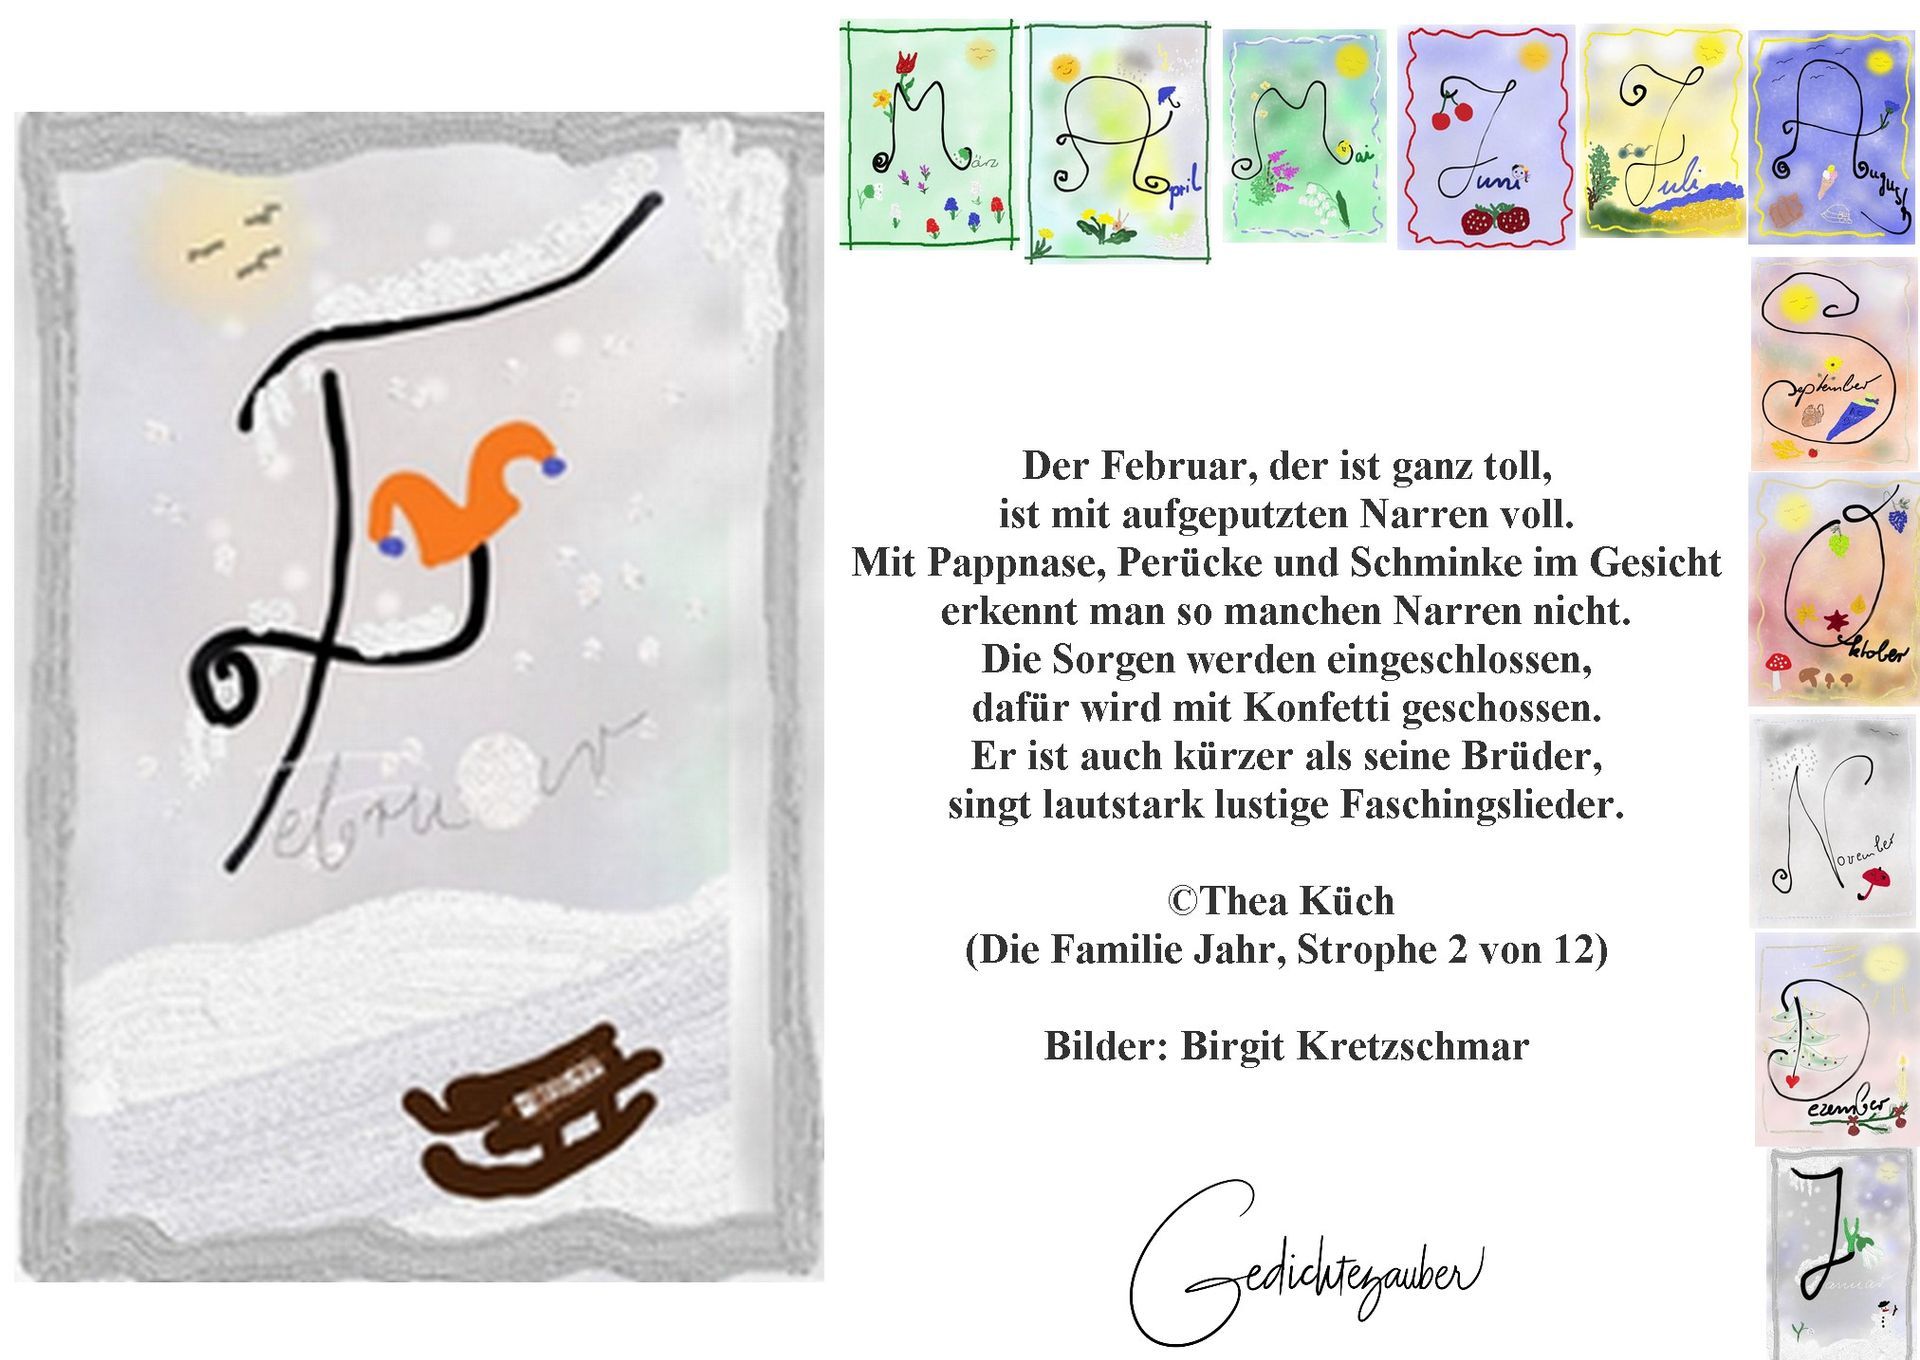 Februar
März
April
Mai
Juni
Juli
August
September
Oktober
November
Dezember
Januar
Der Februar, der ist ganz toll,
ist mit aufgeputzten Narren voll.
Mit Pappnase, Perücke und Schminke im Gesicht
erkennt man so manchen Narren nicht.
Die Sorgen werden eingeschlossen,
dafür wird mit Konfetti geschossen.
Er ist auch kürzer als seine Brüder,
singt lautstark lustige Faschingslieder.
©Thea Küch
(Die Familie Jahr, Strophe 2 von 12)
Bilder: Birgit Kretzschmar
Gedichtezauber